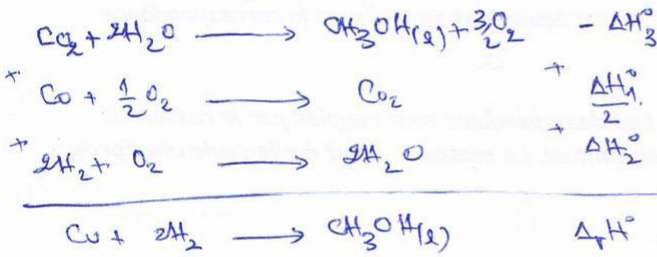 CO₂ + 2H₂O ⟶ CH₃OH(l) + 3/2 O₂ - ΔH₃°
+ CO + 1/2 O₂ ⟶ CO₂ + ΔH₁°/2
+ 2H₂ + O₂ ⟶ 2H₂O + ΔH₂°
CO + 2H₂ ⟶ CH₃OH(l) ΔrH°